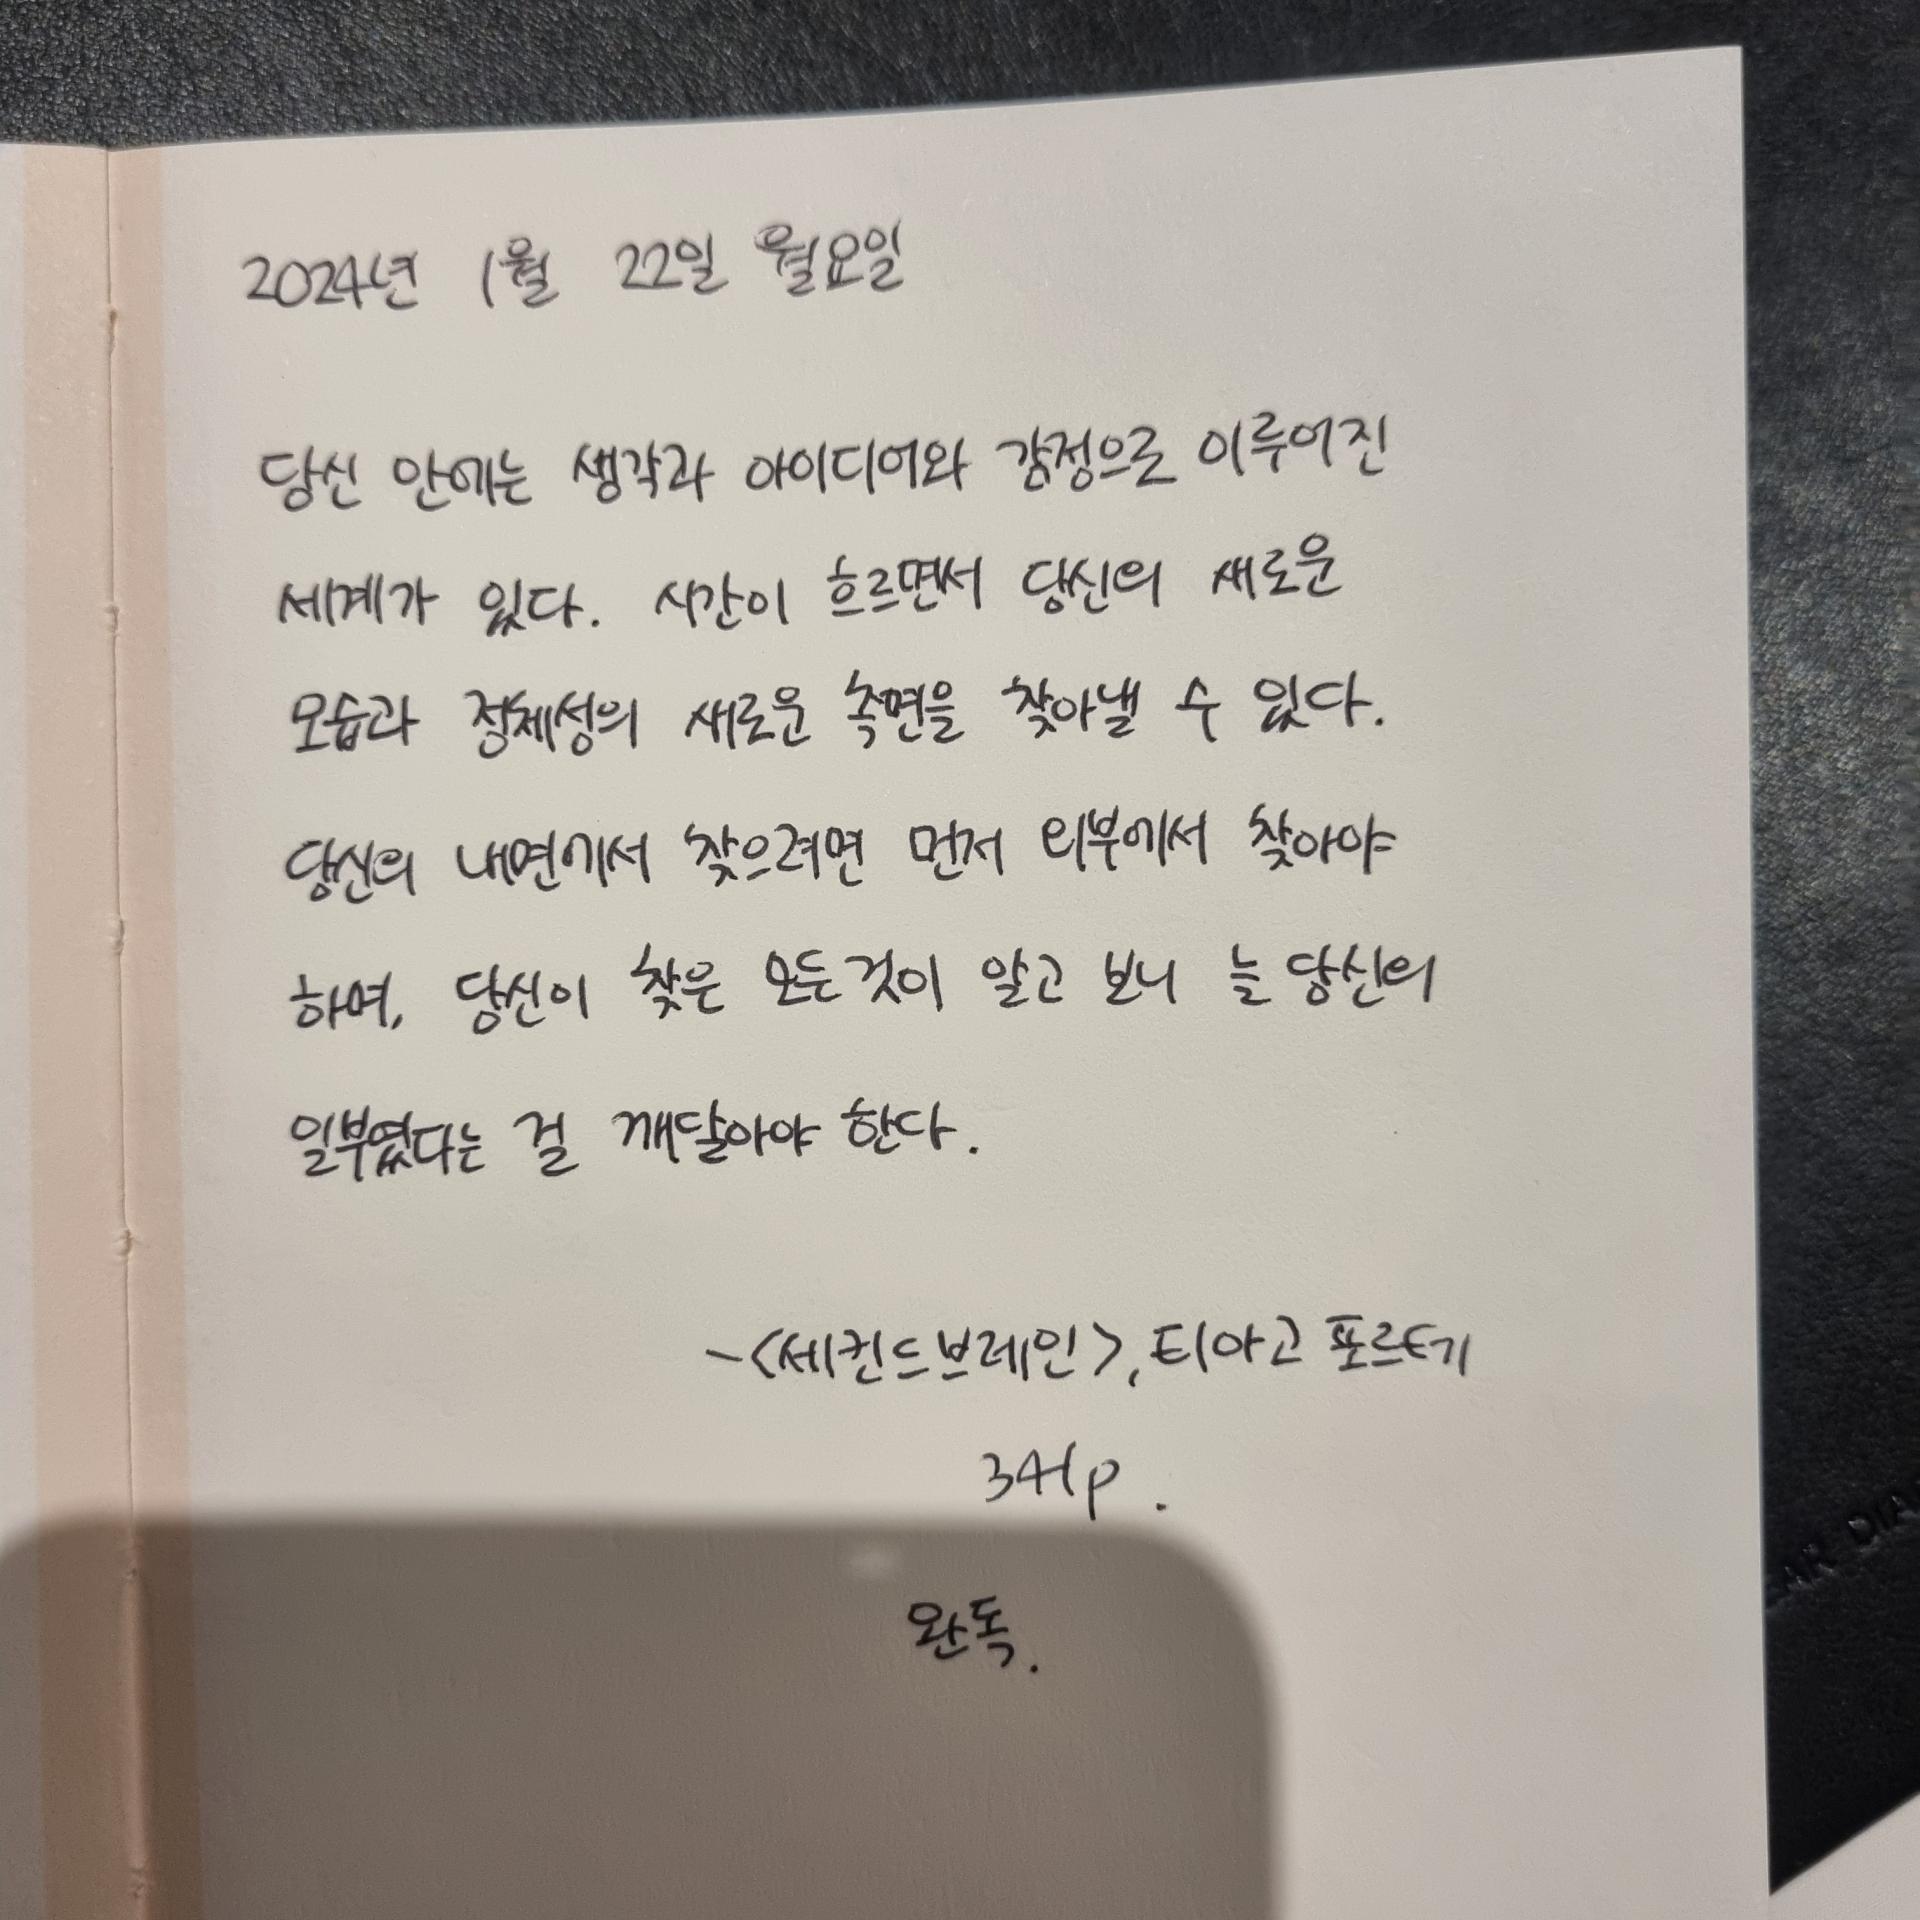 2024년 1월 22일 월요일
당신 안에는 생각과 아이디어와 감정으로 이루어진
세계가 있다. 시간이 흐르면서 당신의 새로운
모습과 정체성의 새로운 측면을 찾아낼 수 있다.
당신의 내면에서 찾으려면 먼저 외부에서 찾아야
하며, 당신이 찾은 모든 것이 알고 보니 늘 당신의
일부였다는 걸 깨달아야 한다.
-<세컨드브레인>, 티아고 포르테기
341p.
완독.
AR DIA